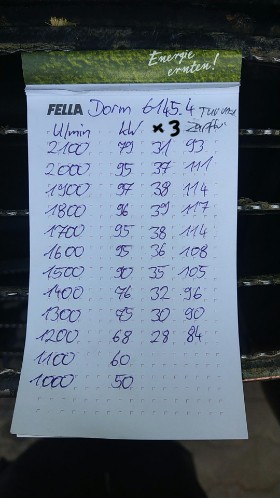 Energie
ernten!
FELLA Dorm 6145.4
U/min kW x 3
2100 79 31 93
2000 95 37 111
1900 97 38 114
1800 96 39 117
1700 95 38 114
1600 95 36 108
1500 90 35 105
1400 76 32 96
1300 75 30 90
1200 68 28 84
1100 60
1000 50